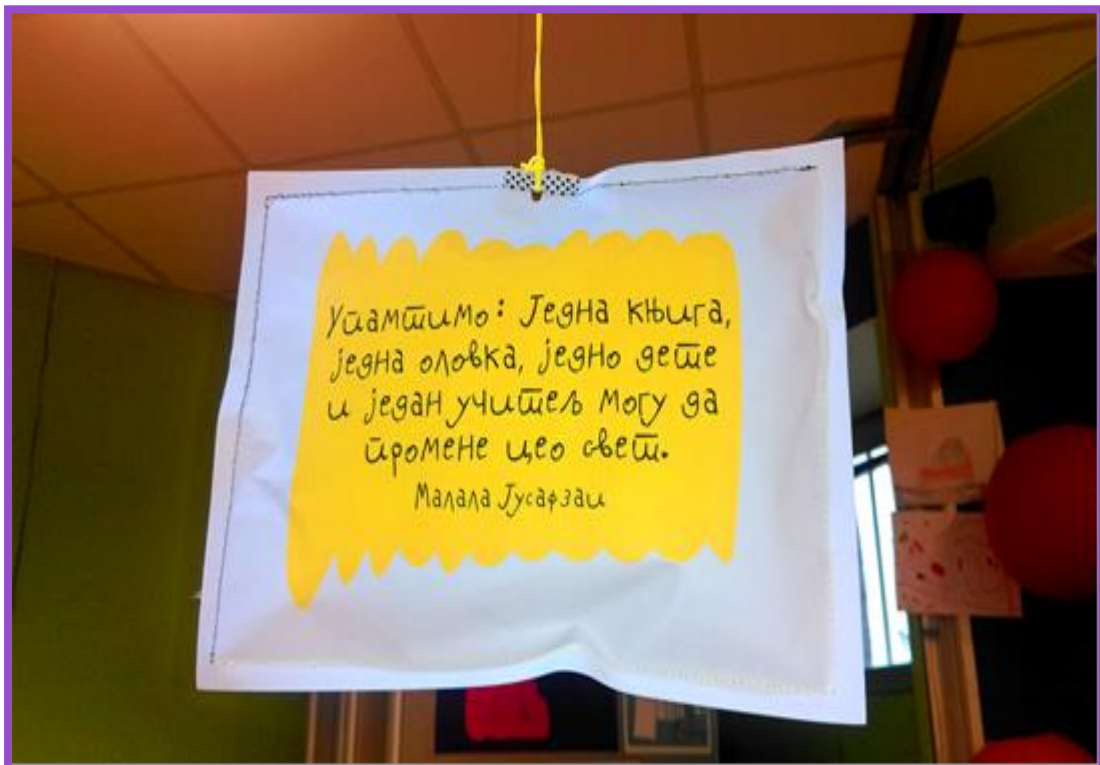 Упамтимо: Једна књига,
једна оловка, једно дете
и један учитељ могу да
промене цео свет.
Малала Јусафзаи